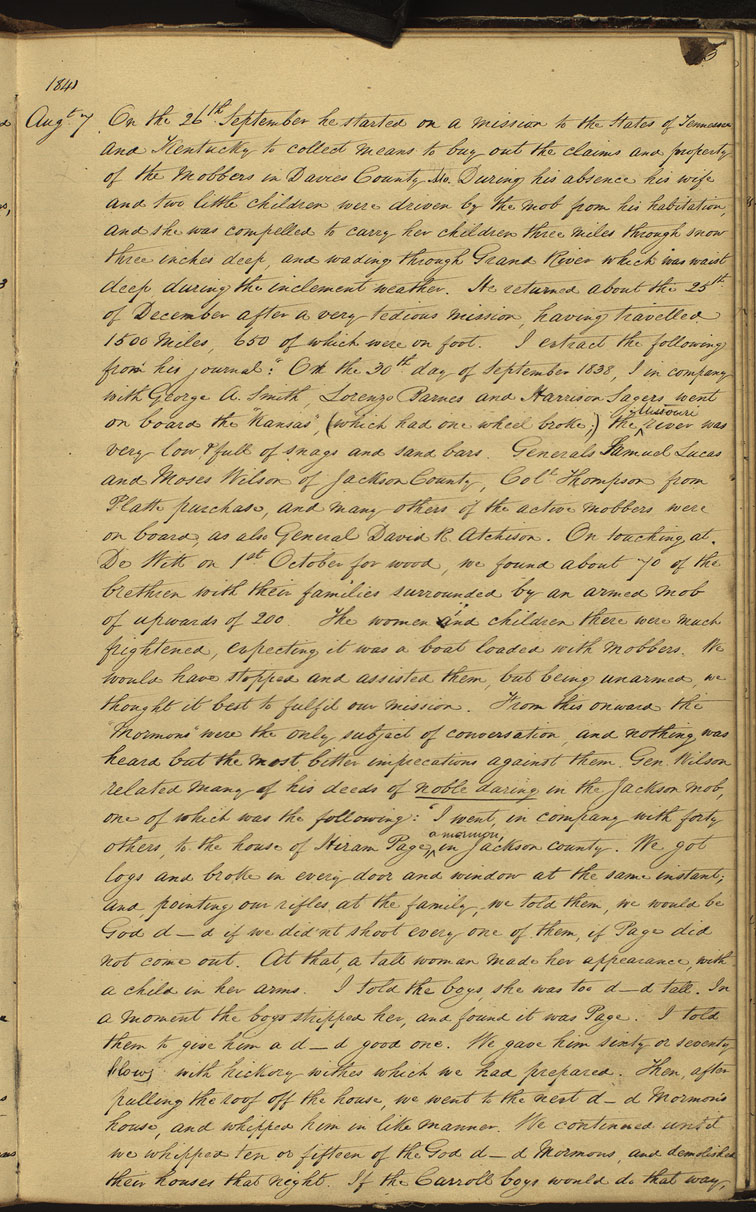 1841
Augt 7 On the 26th September he started on a mission to the States of Tennessee
and Kentucky to collect means to buy out the claims and property
of the Mobbers in Davies County Mo. During his absence his wife
and two little children were driven by the mob from his habitation,
and she was compelled to carry her children three miles through snow
three inches deep, and wading through Grand River which was waist
deep during the inclement weather. He returned about the 25th
of December after a very tedious mission, having travelled
1500 miles, 650 of which were on foot. I extract the following
from his journal: "On the 30th day of September 1838, I in company
with George A. Smith, Lorenzo Barnes and Harrison Sagers went
on board the "Kansas", (which had one wheel broke;) the Missouri river was
very low & full of snags and sand bars. Generals Samuel Lucas
and Moses Wilson of Jackson County, Col. Thompson from
Platte purchase, and many others of the active mobbers were
on board, as also General David R. Atchison. On touching at
De Witt on 1st October for wood, we found about 70 of the
brethren with their families surrounded by an armed mob
of upwards of 200. The women and children there were much
frightened, expecting it was a boat loaded with mobbers. We
would have stopped and assisted them, but being unarmed, we
thought it best to fulfil our mission. From this onward the
"Mormons" were the only subject of conversation, and nothing was
heard but the most bitter imprecations against them. Gen. Wilson
related many of his deeds of noble daring in the Jackson mob,
one of which was the following: "I went, in company with forty
others, to the house of Hiram Page, a mormon, in Jackson county. We got
logs and broke in every door and window at the same instant;
and pointing our rifles at the family, we told them, we would be
God d—d if we did'nt shoot every one of them, if Page did
not come out. At that, a tall woman made her appearance, with
a child in her arms. I told the boys, she was too d—d tall. In
a moment the boys stripped her, and found it was Page. I told
them to give him a d—d good one. We gave him sixty or seventy
blows with hickory withes which we had prepared. Then, after
pulling the roof off the house, we went to the next d—d Mormons
house, and whipped him in like manner. We continued until
we whipped ten or fifteen of the God d—d Mormons, and demolished
their houses that night. If the Carroll boys would do that way,